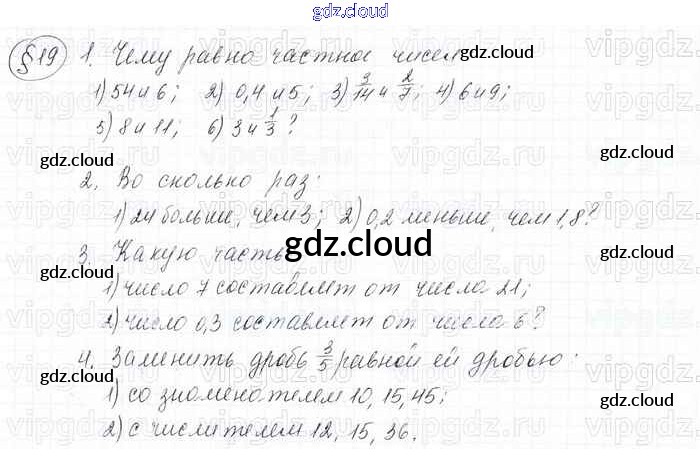 gdz.cloud
§19 1. Чему равно частное чисел gdz.cloud
1) 54 и 6; 2) 0,4 и 5; 3) 3/14 и 2/7; 4) 6 и 9;
5) 8 и 11; 6) 3 и 1/3?
gdz.cloud gdz.cloud
2. Во сколько раз:
1) 24 больше, чем 3; 2) 0,2 меньше, чем 1,8?
3. Какую часть gdz.cloud
1) число 7 составляет от числа 21;
2) число 0,3 составляет от числа 6?
gdz.cloud gdz.cloud
4. Заменить дробь 3/5 равной ей дробью:
gdz.cloud
1) со знаменателем 10, 15, 45;
gdz.cloud
2) с числителем 12, 15, 36.
gdz.cloud